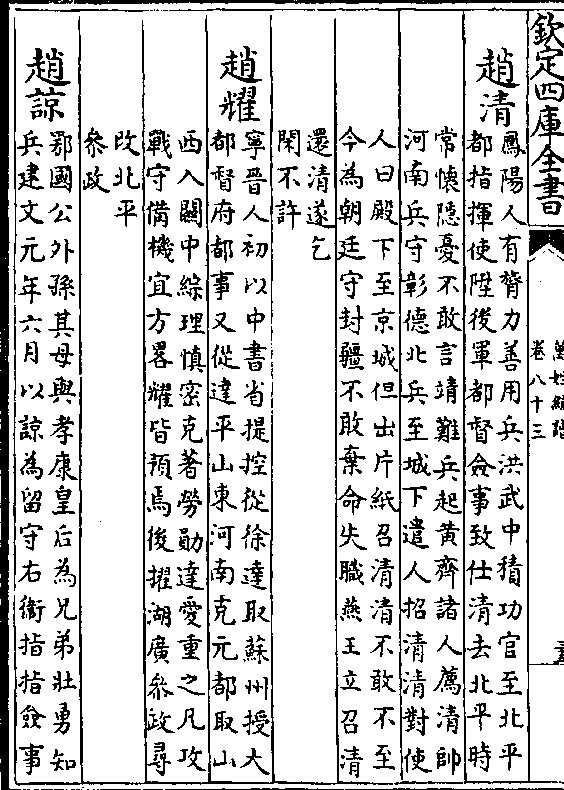 欽定四庫全書
萬姓統譜
卷八十三
趙清
鳳陽人有膂力善用兵洪武中積功官至北平
都指揮使陞後軍都督僉事致仕清去北平時
常懷隱憂不敢言靖難兵起黄齊諸人薦清帥
河南兵守彰德北兵至城下遣人招清清對使
人曰殿下至京城但出片紙召清清不敢不至
今為朝廷守封疆不敢棄命失職燕王立召清
還清遂乞
閑不許
趙耀
寧晉人初以中書省提控從徐達取蘇州授大
都督府都事又從達平山東河南克元都取山
西入關中綜理慎密克著勞勛達愛重之凡攻
戰守備機宜方畧耀皆預焉後擢湖廣參政尋
改北平
參政
趙諒
鄂國公外孫其母與孝康皇后為兄弟壯勇知
兵建文元年六月以諒為留守右衛指指僉事